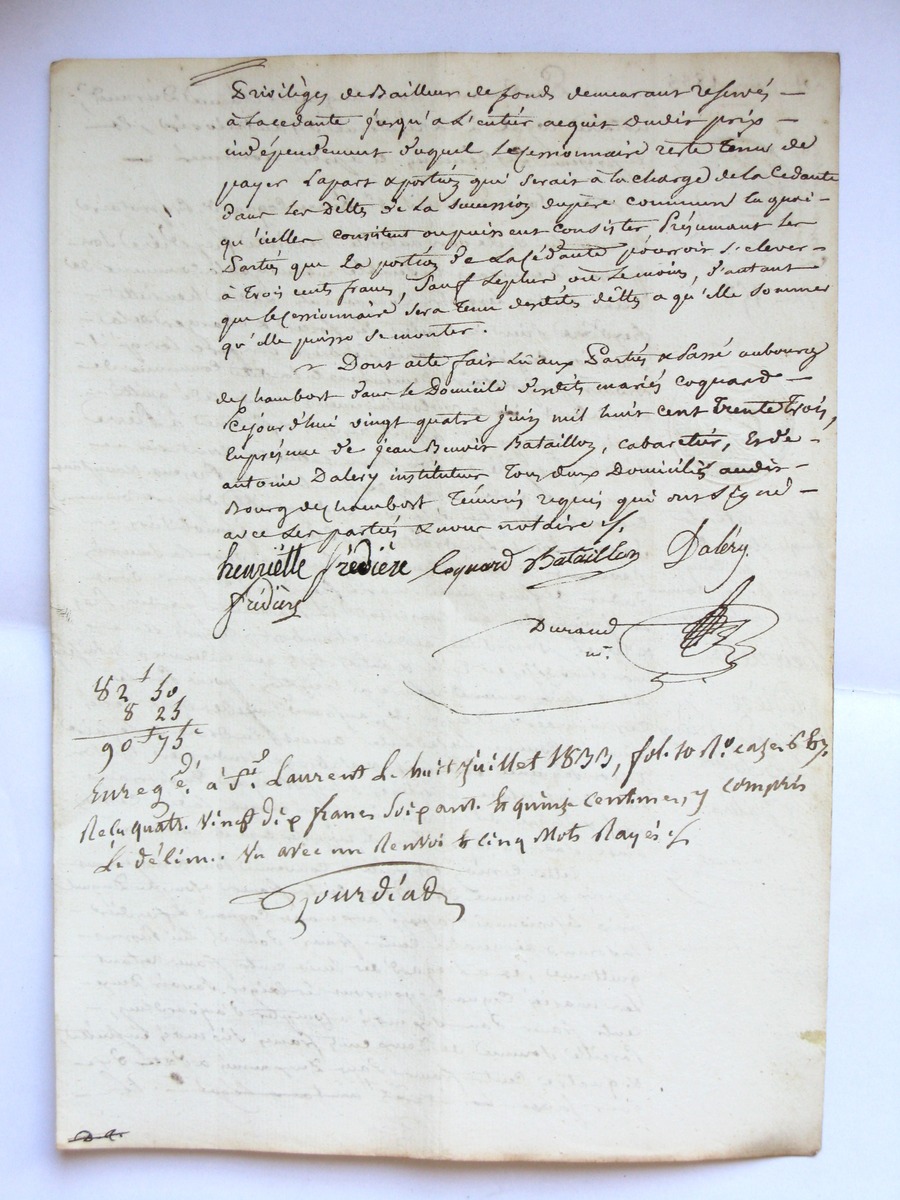 Privilèges de Bailleur de fonds demeurant reservés —
à la cédante jusqu'a l'entier acquit dudit prix —
indépendament duquel le cessionnaire reste tenu de
payer la part & portion qui serait à la charge de la Cedante
dans les Dêttes de la succession du père commun en quoi
qu'icelles consistent ou puissent consister, Présumant les
Parties que la portion de la Cédante pourroir s'elever —
à trois cents francs, sauf le plus, ou le moins, d'autant
que le Cessionnaire sera tenu desdites dêttes a qu'elle somme
qu'elle puisse se monter.
Dont acte fait lu aux Parties & Passé au bourg
de chambost dans le Domicile desdits mariés Coquard —
Cejourd'hui vingt quatre juin mil huit cent trente trois,
En présence de jean Benoit Bataillon, cabaretier, et de —
antoine Daléry instituteur tous deux Domiciliés audit —
Bourg de chambost, témoins requis qui ont signé —
avec les parties & nous notaire ./.
henriëtte frédiére Coquard Bataillon Daléry
frédière
Durand
nre.
82 f 50
8 25
90 f 75 c
Enregé. à St. Laurent le huit juillet 1833, fol. 10 Ro. cases 6 & 7.
Reçu quatre vingt dix francs Soixante & quinze centimes, y compris
le décime. Vu avec un Renvoi & cinq Mots Rayés ./.